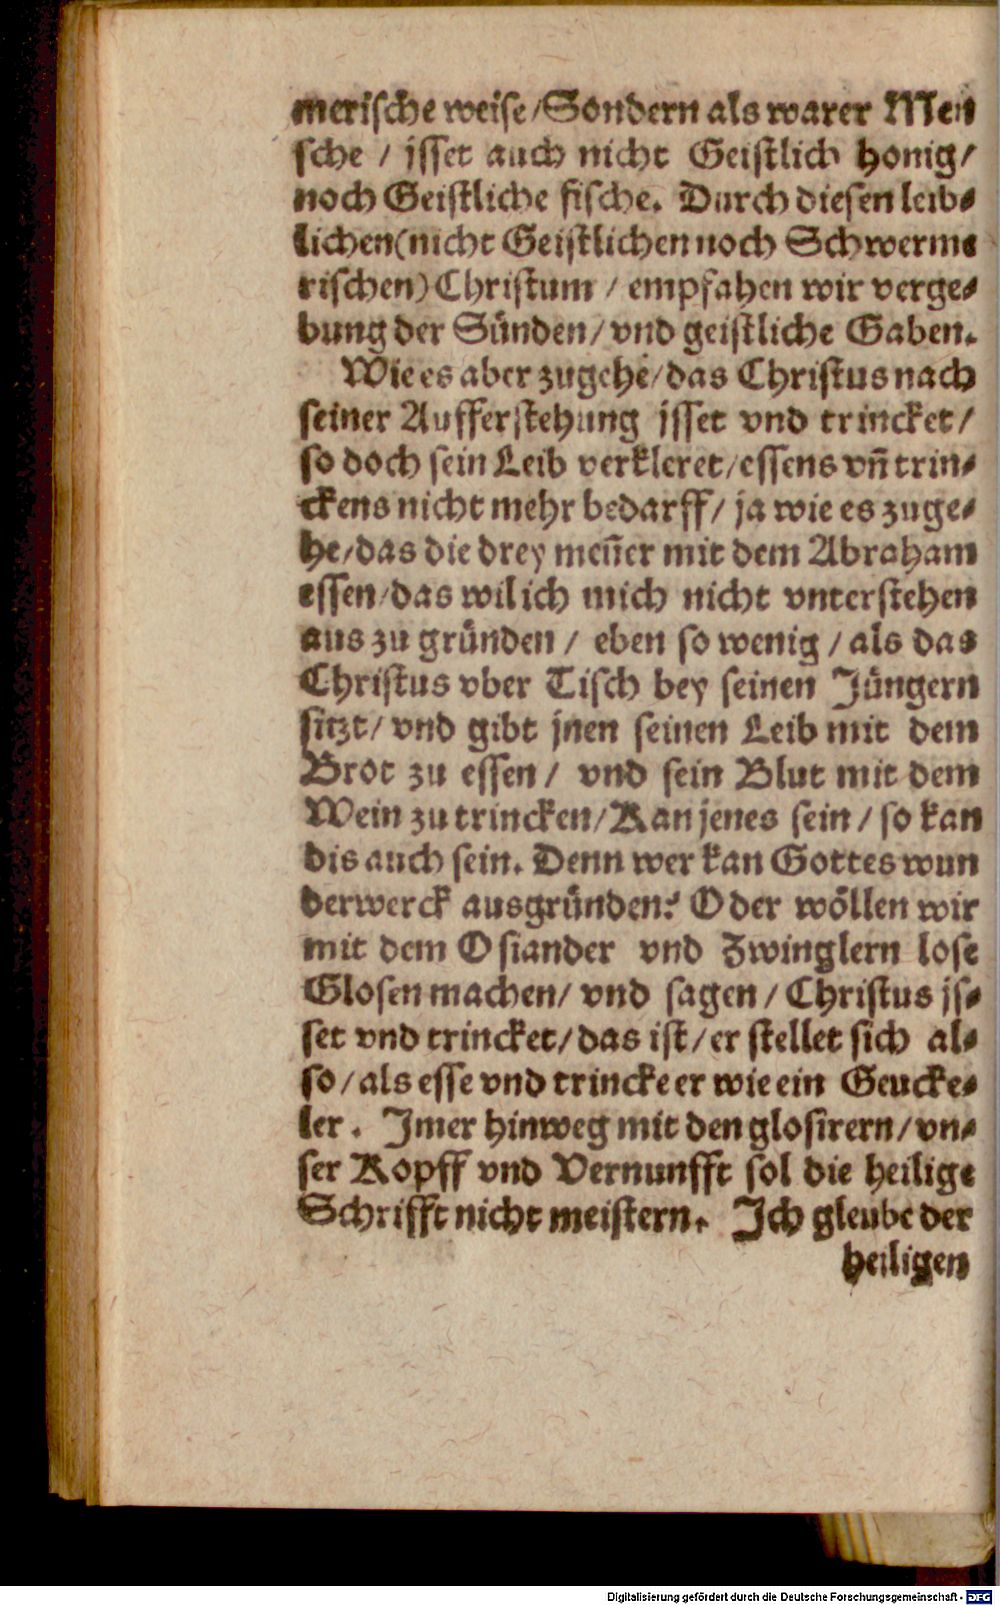 merische weise/Sondern als warer Men
sche / jsset auch nicht Geistlich honig/
noch Geistliche fische. Durch diesen leib⸗
lichen(nicht Geistlichen noch Schwerme
rischen) Christum / empfahen wir verge⸗
bung der Sünden/ vnd geistliche Gaben.
Wie es aber zugehe/das Christus nach
seiner Aufferstehung jsset vnd trincket/
so doch sein Leib verkleret/essens vn̄ trin⸗
ckens nicht mehr bedarff/ ja wie es zuge⸗
he/das die drey men̄er mit dem Abraham
essen/das wil ich mich nicht vnterstehen
aus zu gründen / eben so wenig / als das
Christus vber Tisch bey seinen Jüngern
sitzt/ vnd gibt jnen seinen Leib mit dem
Brot zu essen / vnd sein Blut mit dem
Wein zu trincken/Kan jenes sein / so kan
dis auch sein. Denn wer kan Gottes wun
derwerck ausgründen? Oder wöllen wir
mit dem Osiander vnd Zwinglern lose
Glosen machen/ vnd sagen / Christus js⸗
set vnd trincket/das ist/er stellet sich al⸗
so/als esse vnd trincke er wie ein Geucke⸗
ler. Jmer hinweg mit den glosirern/vn⸗
ser Kopff vnd Vernunfft sol die heilige
Schrifft nicht meistern. Jch gleube der
heiligen
Digitalisierung gefördert durch die Deutsche Forschungsgemeinschaft - DFG